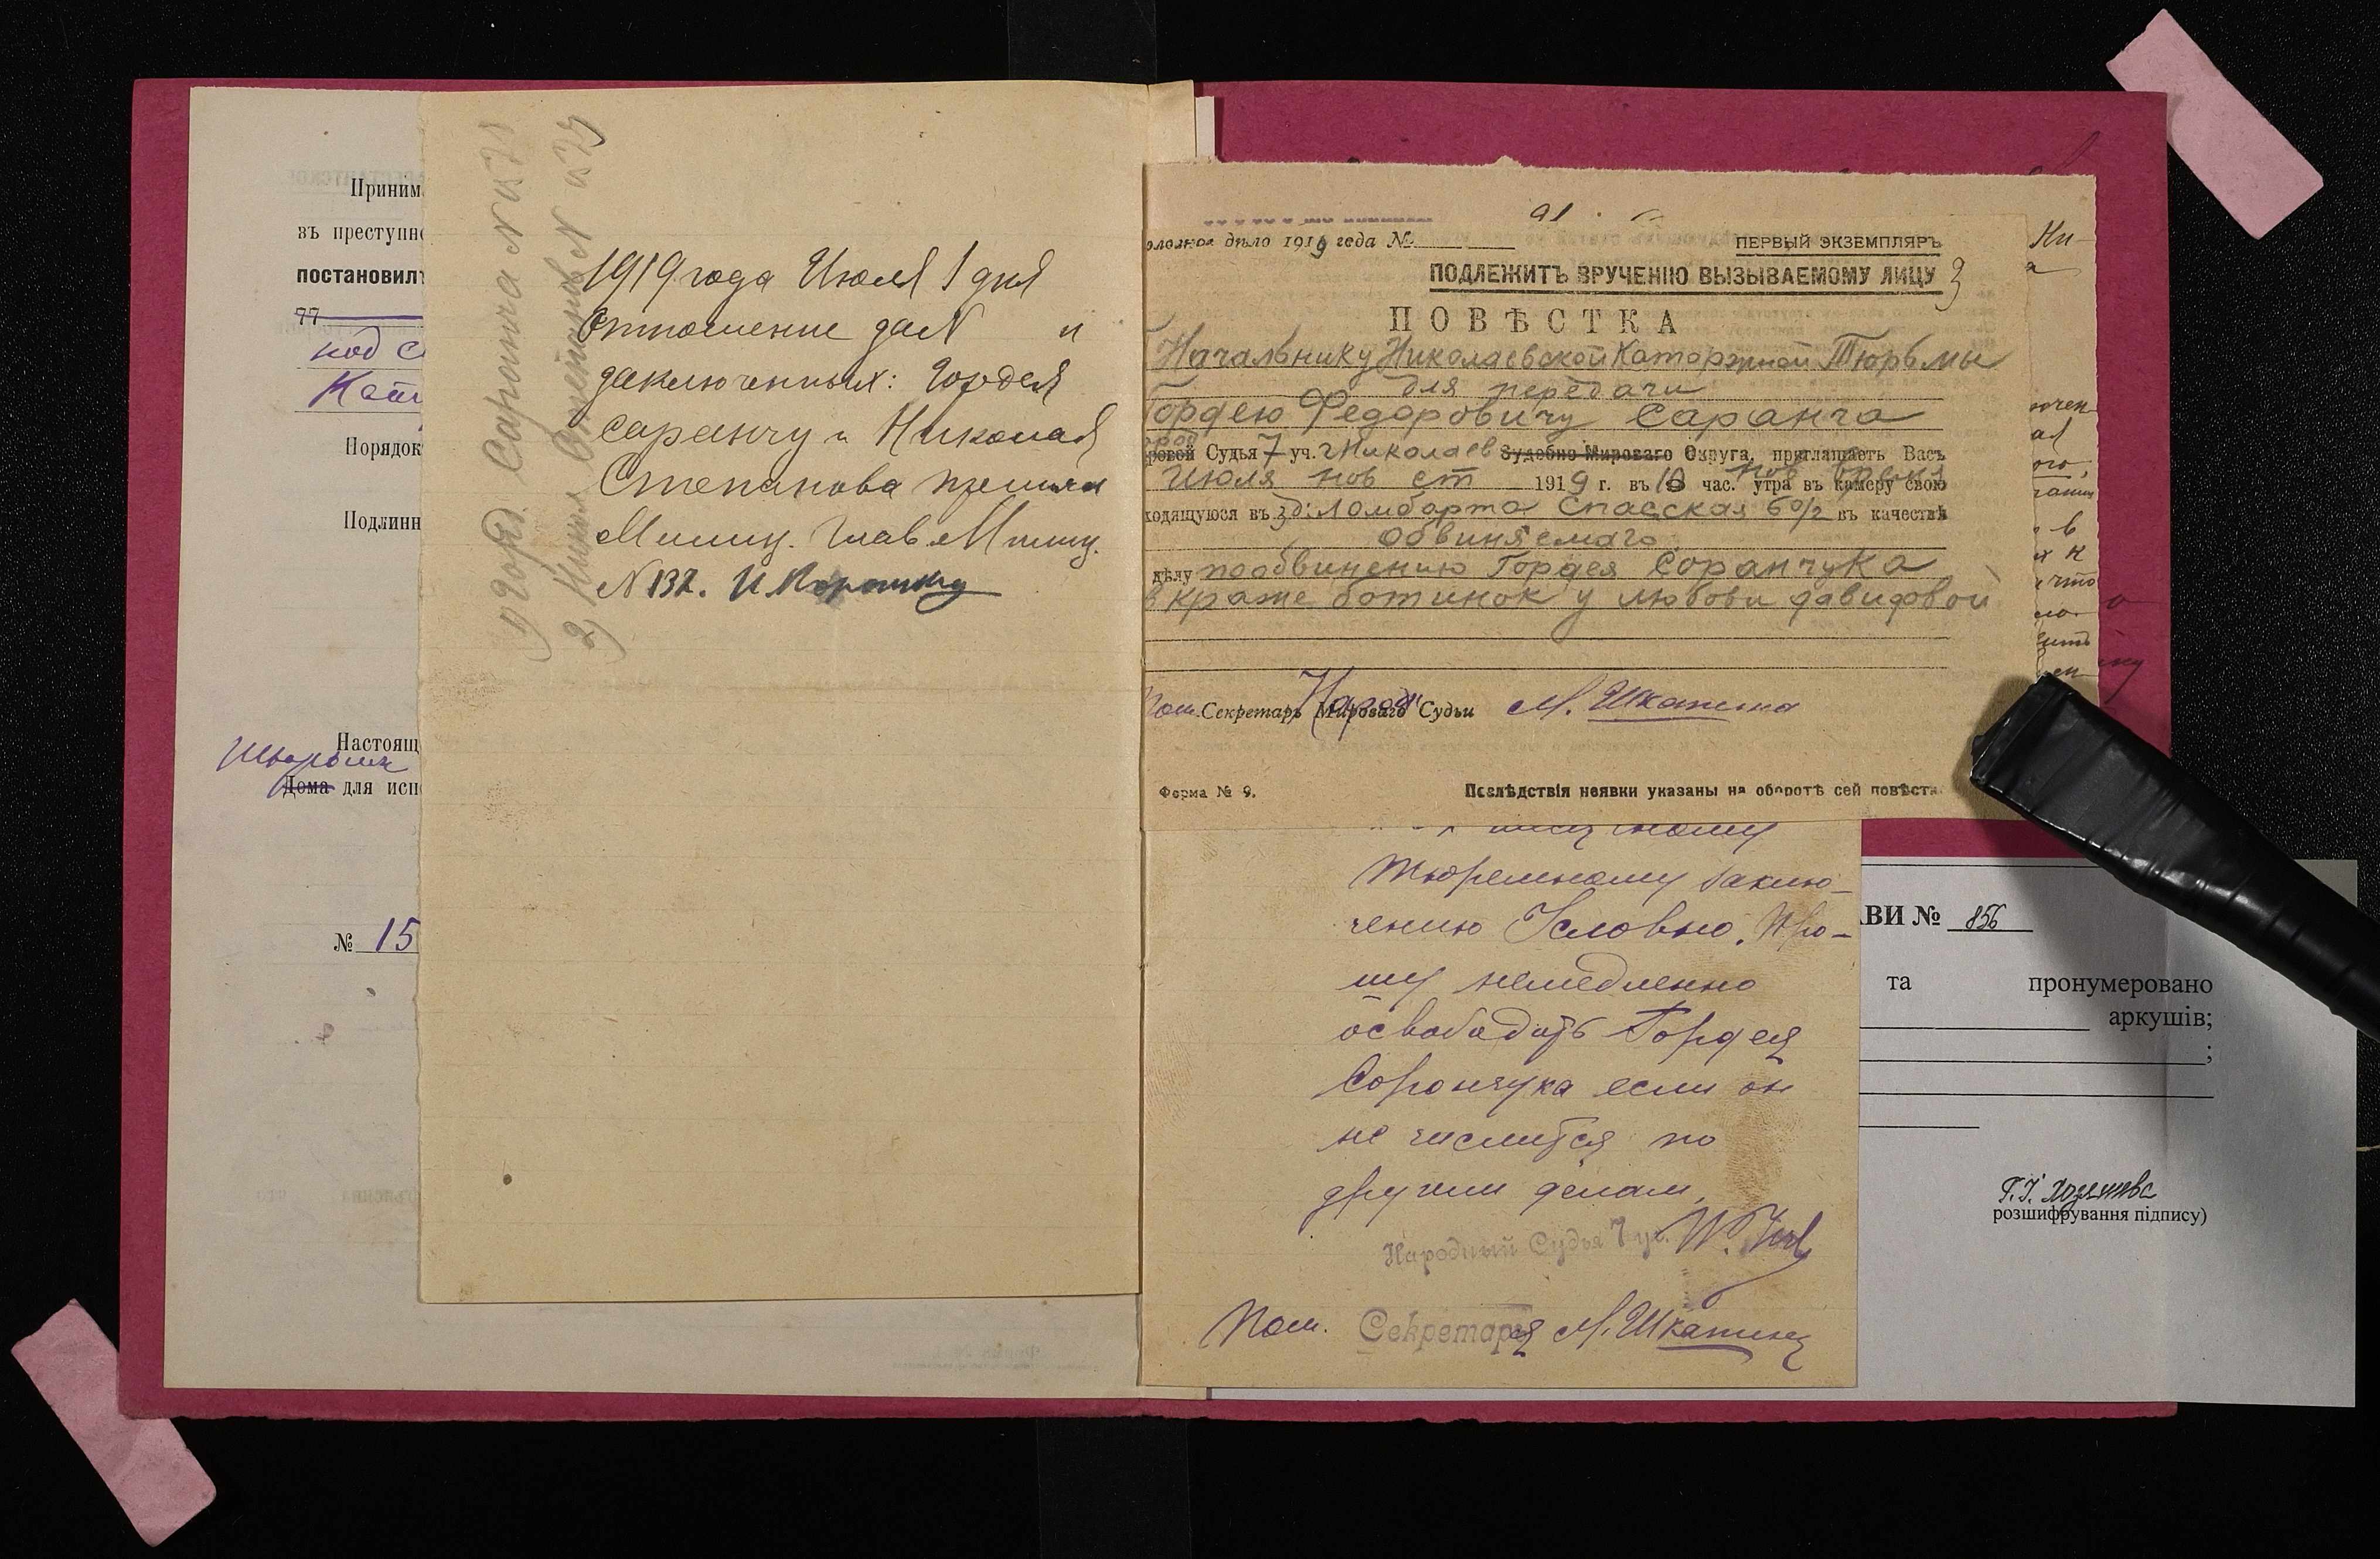 Приним
въ преступн
постановил
77
под с
Кат
Порядок
Подлинн
Настоящ
Дома для исп
№ 15
1919 года Июля 1 дня
Отношение за N и
заключенных: Гордея
Саранчу и Николая
Степанова принял
Милиц. Глав. Милиц.
N 132.
1) Горд. Саранча N
2) Никол Степанов N
дѣло 1919 года №
ПЕРВЫЙ ЭКЗЕМПЛЯРЪ
ПОДЛЕЖИТЪ ВРУЧЕНІЮ ВЫЗЫВАЕМОМУ ЛИЦУ 3
ПОВѢСТКА
Начальнику Николаевской Каторжной Тюрьмы
для передачи
Гордею Федоровичу Саранча
ровой Судья 7 уч. г Николаев Судебно-Мироваго Округа, приглашаетъ Васъ
Июля нов ст 1919 г. въ 10 час. утра нов время въ камеру свою
ходящуюся въ зд. Ломбарта Спасская 60/2 въ качествѣ
Обвиняемаго
дѣлу по обвинению Гордея Соранчука
в краже ботинок у Любови Давидовой
Пом. Секретарь Мироваго Народ Судьи М. Шкатина
Форма № 9.
Послѣдствія неявки указаны на оборотѣ сей повѣстк
тюремному заклю-
чению Условно. Про-
шу немедленно
освободить Гордея
Соранчука если он
не числится по
другим делам.
Народный Судья 7 уч.
Пом. Секретаря М. Шкатина
Ки-
ВИ № 856
та пронумеровано
аркушів;
;
розшифрування підпису)